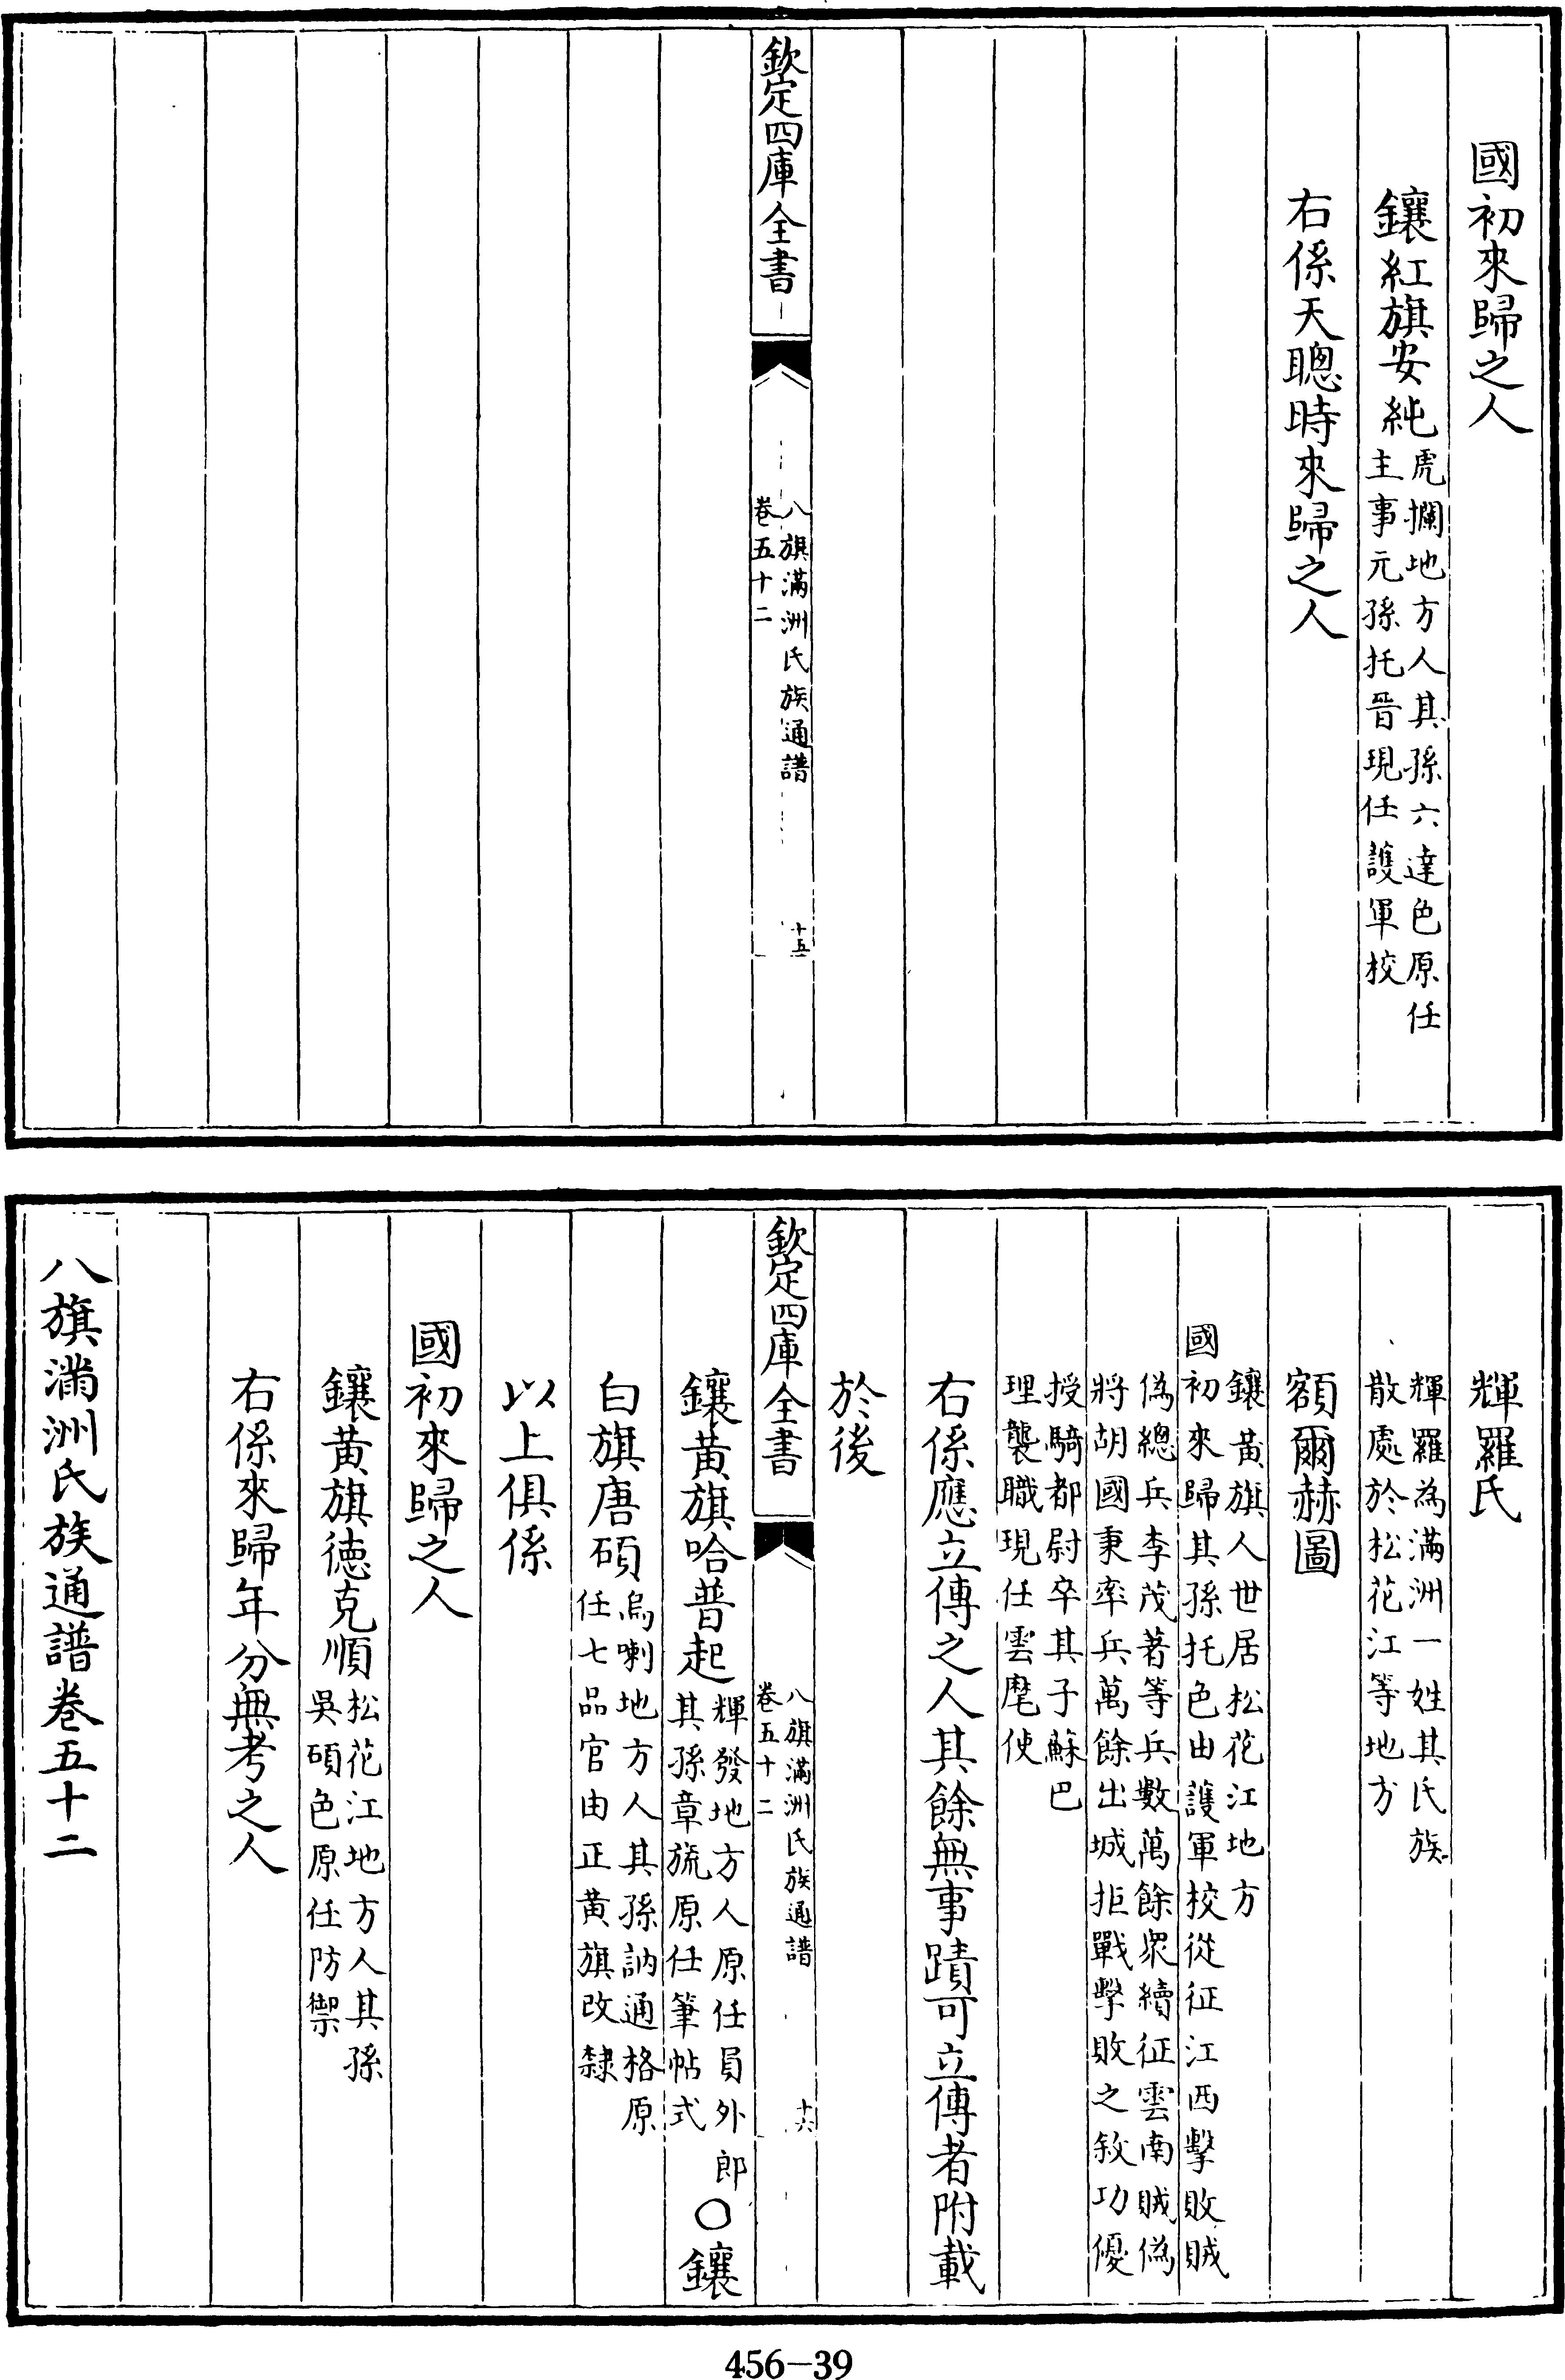 國初來歸之人
鑲紅旗安純
虎攔地方人其孫六達色原任
主事元孫托晉現任護軍校
右係天聰時來歸之人
欽定四庫全書
八旗滿洲氏族通譜
卷五十二
十五
輝羅氏
輝羅為滿洲一姓其氏族
散處於松花江等地方
額爾赫圖
鑲黃旗人世居松花江地方
國初來歸其孫托色由護軍校從征江西擊敗賊
偽總兵李茂著等兵數萬餘衆續征雲南賊偽
將胡國秉率兵萬餘出城拒戰擊敗之敘功優
授騎都尉卒其子蘇巴
理襲職現任雲麾使
右係應立傳之人其餘無事蹟可立傳者附載
於後
欽定四庫全書
八旗滿洲氏族通譜
卷五十二
十六
鑲黃旗哈普起
輝發地方人原任員外郎
其孫章旒原任筆帖式
○鑲
白旗唐碩
烏喇地方人其孫訥通格原
任七品官由正黃旗改隸
以上俱係
國初來歸之人
鑲黃旗德克順
松花江地方人其孫
吳碩色原任防禦
右係來歸年分無考之人
八旗滿洲氏族通譜卷五十二
456-39